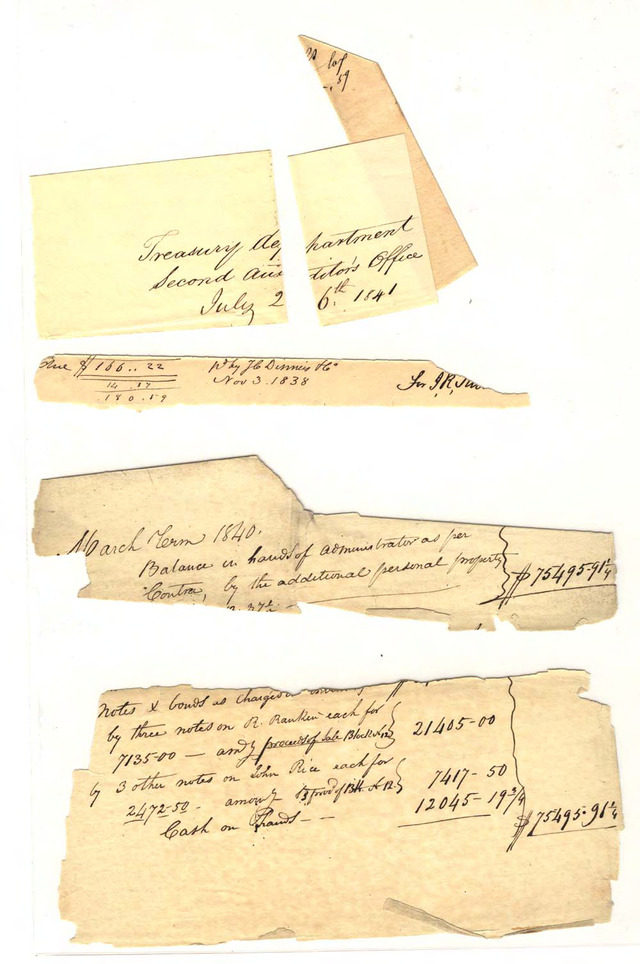 lof
.59
Treasury department
Second Auditor's Office
July 26th. 1841
Due $166..22 pd by JC Dinnies & Co
Nov 3. 1838
14 .37
.180 .59
March Term 1840.
Balance in hands of administrator as per
Contra, by the additional personal property $75495-91¼
37½
notes & bonds as charged
by three notes on R. Rankin each for
7135-00 — amg proceeds of sale Block No 21405-00
by 3 other notes on John Rice each for
2472-50 - among 7417-50
Cash on hand - - 12045-19¾
$75495-91¼